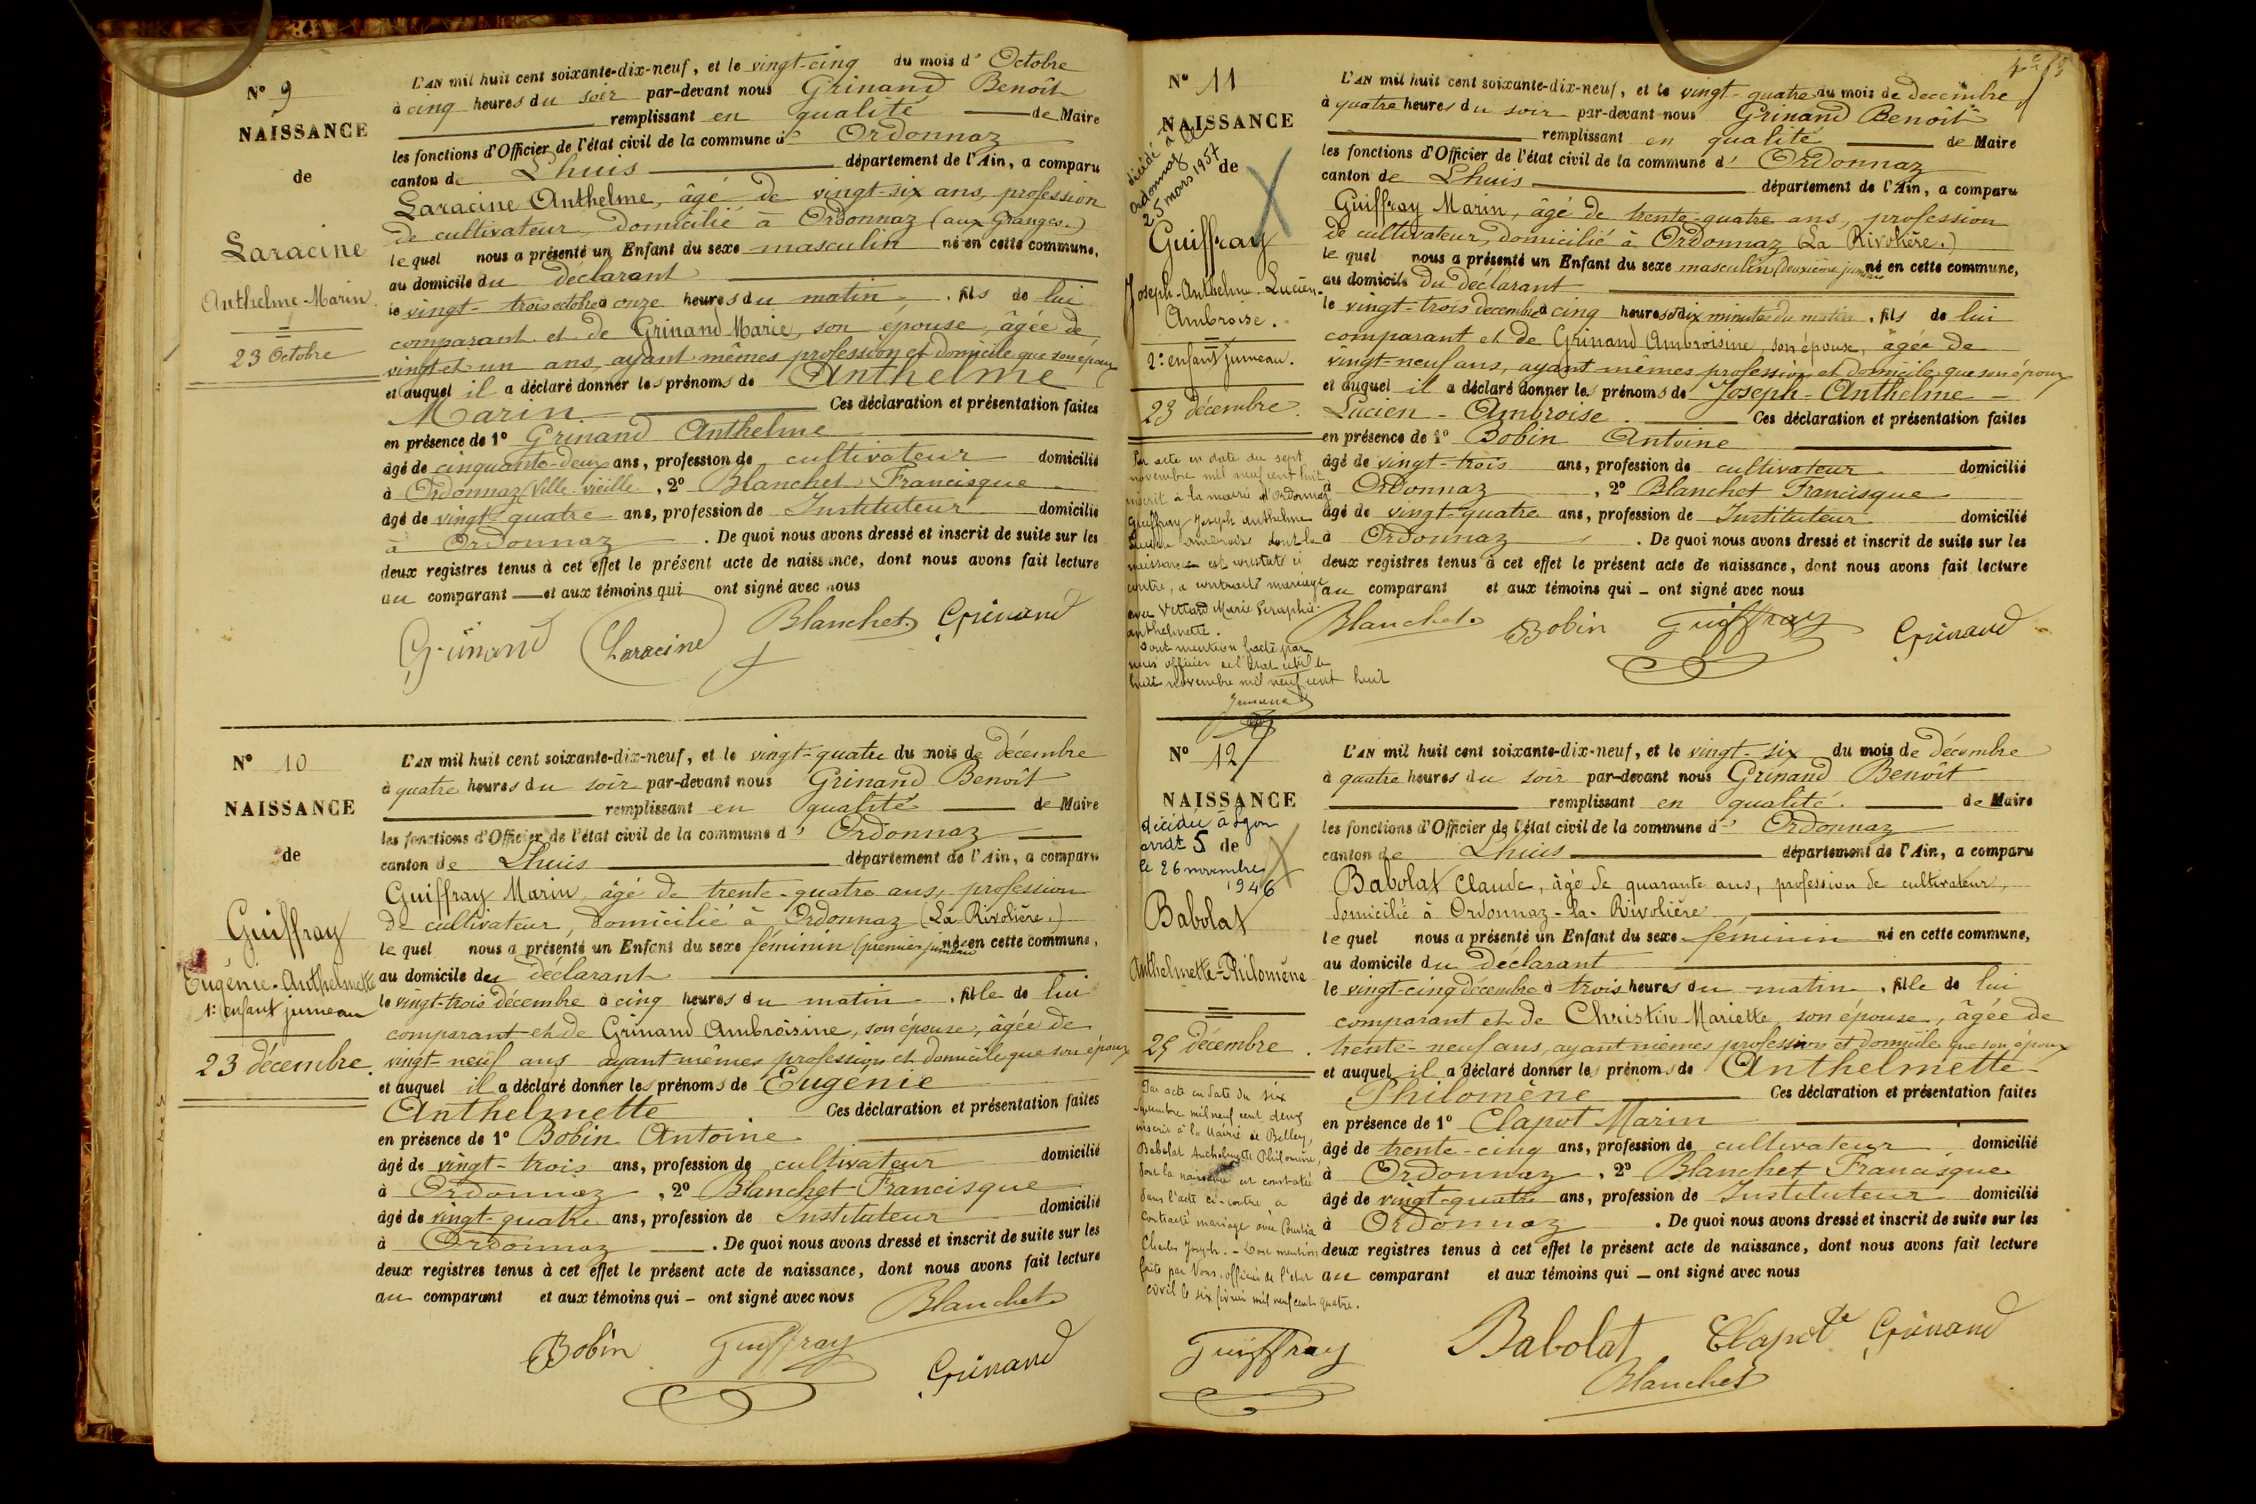 N° 9
NAISSANCE
de
Laracine
Anthelme-Marin.
23 Octobre
L'AN mil huit cent soixante-dix-neuf, et le vingt-cinq du mois d' Octobre
à cinq heures du soir par-devant nous Grinand Benoît
remplissant en qualité de Maire
les fonctions d'Officier de l'état civil de la commune d' Ordonnaz
canton de Lhuis département de l'Ain, a comparu
Laracine Anthelme, âgé de vingt-six ans, profession
de cultivateur, domicilié à Ordonnaz (aux Granges.)
lequel nous a présenté un Enfant du sexe masculin né en cette commune,
au domicile du déclarant
le vingt-trois octobre à onze heures du matin, fils de lui
comparant et de Grinand Marie, son épouse, âgée de
vingt et un ans, ayant mêmes profession et domicile que son époux
et auquel il a déclaré donner les prénoms de Anthelme
Marin Ces déclaration et présentation faites
en présence de 1° Grinand Anthelme
âgé de cinquante-deux ans, profession de cultivateur domicilié
à Ordonnaz (Ville vieille, 2° Blanchet Francisque
âgé de vingt-quatre ans, profession de Instituteur domicilié
à Ordonnaz. De quoi nous avons dressé et inscrit de suite sur les
deux registres tenus à cet effet le présent acte de naissance, dont nous avons fait lecture
au comparant et aux témoins qui ont signé avec nous
Blanchet Grinand
Grinand Laracine
N° 10
NAISSANCE
de
Guiffray
Eugénie-Anthelmette
1er enfant jumeau
23 décembre.
L'AN mil huit cent soixante-dix-neuf, et le vingt-quatre du mois de décembre
à quatre heures du soir par-devant nous Grinand Benoît
remplissant en qualité de Maire
les fonctions d'Officier de l'état civil de la commune d' Ordonnaz
canton de Lhuis département de l'Ain, a comparu
Guiffray Marin, âgé de trente-quatre ans, profession
de cultivateur, domicilié à Ordonnaz (La Rivolière.)
lequel nous a présenté un Enfant du sexe féminin (premier jumeau né en cette commune,
au domicile du déclarant
le vingt-trois décembre à cinq heures du matin, fille de lui
comparant et de Grinand Ambroisine, son épouse, âgée de
vingt-neuf ans ayant mêmes profession et domicile que son époux
et auquel il a déclaré donner les prénoms de Eugénie
Anthelmette Ces déclaration et présentation faites
en présence de 1° Bobin Antoine
âgé de vingt-trois ans, profession de cultivateur domicilié
à Ordonnaz, 2° Blanchet Francisque
âgé de vingt-quatre ans, profession de Instituteur domicilié
à Ordonnaz. De quoi nous avons dressé et inscrit de suite sur les
deux registres tenus à cet effet le présent acte de naissance, dont nous avons fait lecture
au comparant et aux témoins qui – ont signé avec nous
Blanchet
Bobin Guiffray Grinand
N° 11
NAISSANCE
de
décédé à
Ordonnaz le
25 mars 1957
Guiffray
Joseph-Anthelme-Lucien-
Ambroise.
2e enfant jumeau.
23 décembre.
Par acte en date du sept
novembre mil neuf cent huit
inscrit à la mairie d'Ordonnaz
Guiffray Joseph Anthelme
Lucien Ambroise dont la
naissance est constatée ci
contre, a contracté mariage
avec Vettard Marie Séraphie
anthelmette.
Dont mention faite par
nous officier de l'état civil le
huit novembre mil neuf cent huit
L'AN mil huit cent soixante-dix-neuf, et le vingt-quatre du mois de décembre,
à quatre heures du soir par-devant nous Grinand Benoît
remplissant en qualité de Maire
les fonctions d'Officier de l'état civil de la commune d' Ordonnaz
canton de Lhuis département de l'Ain, a comparu
Guiffray Marin, âgé de trente-quatre ans, profession
de cultivateur, domicilié à Ordonnaz (La Rivolière.)
lequel nous a présenté un Enfant du sexe masculin (deuxième jumeau né en cette commune,
au domicile du déclarant
le vingt-trois décembre à cinq heures dix minutes du matin, fils de lui
comparant et de Grinand Ambroisine, son épouse, âgée de
vingt-neuf ans, ayant mêmes profession et domicile que son époux
et auquel il a déclaré donner les prénoms de Joseph-Anthelme-
Lucien-Ambroise. Ces déclaration et présentation faites
en présence de 1° Bobin Antoine
âgé de vingt-trois ans, profession de cultivateur domicilié
à Ordonnaz, 2° Blanchet Francisque
âgé de vingt-quatre ans, profession de Instituteur domicilié
à Ordonnaz. De quoi nous avons dressé et inscrit de suite sur les
deux registres tenus à cet effet le présent acte de naissance, dont nous avons fait lecture
au comparant et aux témoins qui – ont signé avec nous
Blanchet Bobin Guiffray Grinand
N° 12
NAISSANCE
de
décédée à Lyon
arrdt 5
le 26 novembre
1946
Babolat
Anthelmette-Philomène
25 décembre.
Par acte en date du six
mil neuf cent deux
inscrit à la Mairie de Belley,
Babolat Anthelmette Philomène,
dont la naissance est constatée
dans l'acte ci-contre, a
contracté mariage avec
Charles Joseph. – Dont mention
faite par Nous, officier de l'état
civil le six février mil neuf cent quatre.
L'AN mil huit cent soixante-dix-neuf, et le vingt-six du mois de décembre
à quatre heures du soir par-devant nous Grinand Benoît
remplissant en qualité de Maire
les fonctions d'Officier de l'état civil de la commune d' Ordonnaz
canton de Lhuis département de l'Ain, a comparu
Babolat Claude, âgé de quarante ans, profession de cultivateur,
domicilié à Ordonnaz-la-Rivolière
lequel nous a présenté un Enfant du sexe féminin né en cette commune,
au domicile du déclarant
le vingt-cinq décembre à trois heures du matin, fille de lui
comparant et de Christin Mariette, son épouse, âgée de
trente-neuf ans, ayant mêmes profession et domicile que son époux
et auquel il a déclaré donner les prénoms de Anthelmette-
Philomène Ces déclaration et présentation faites
en présence de 1° Clapot Marin
âgé de trente-cinq ans, profession de cultivateur domicilié
à Ordonnaz, 2° Blanchet Francisque
âgé de vingt-quatre ans, profession de Instituteur domicilié
à Ordonnaz. De quoi nous avons dressé et inscrit de suite sur les
deux registres tenus à cet effet le présent acte de naissance, dont nous avons fait lecture
au comparant et aux témoins qui – ont signé avec nous
Guiffray Babolat Clapot Grinand
Blanchet